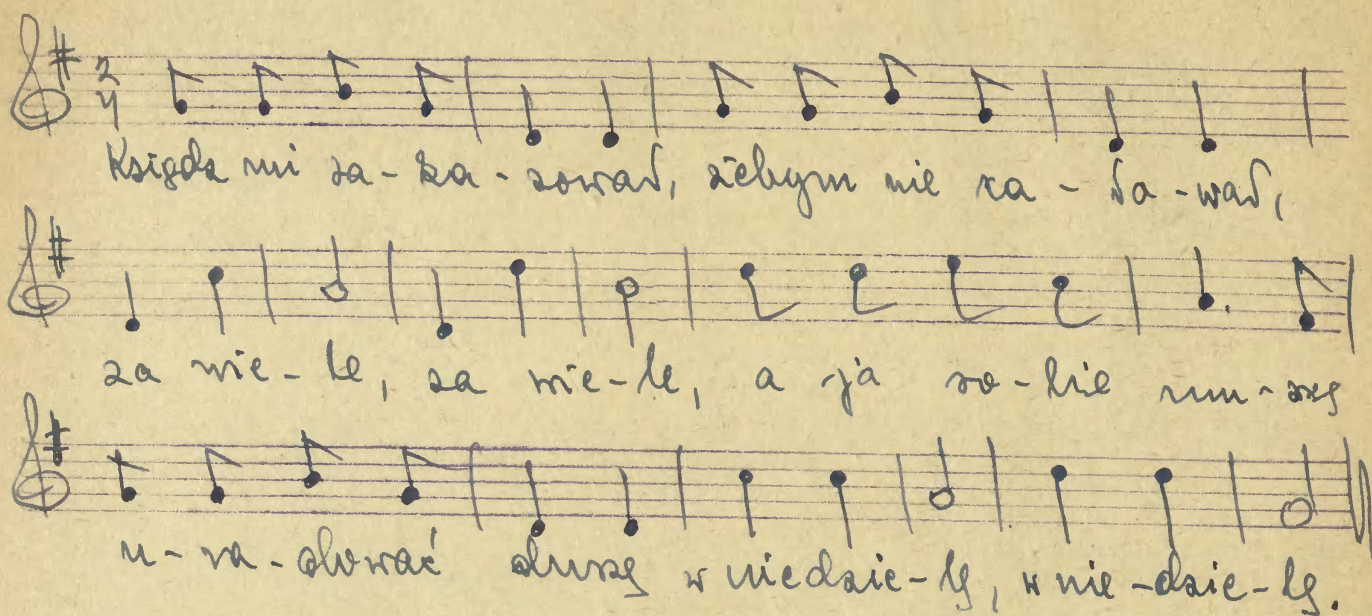 2 4
Ksiądz mi za-ka-zował, żebym nie ca-ło-wał,
za wie-le, za wie-le, a ja so-bie mu-szę
u-ra-dować duszę w niedzie-lę, w nie-dzie-lę.